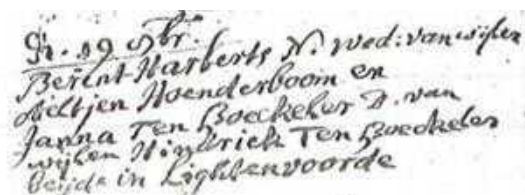 19 9br.
Berent Harberts N. Wed: van wijlen
Aeltjen Hoenderboom en
Janna Ten Boeckeler D. van
wijlen Hindrick Ten Boeckeler
beijde in Lighbenvoorde